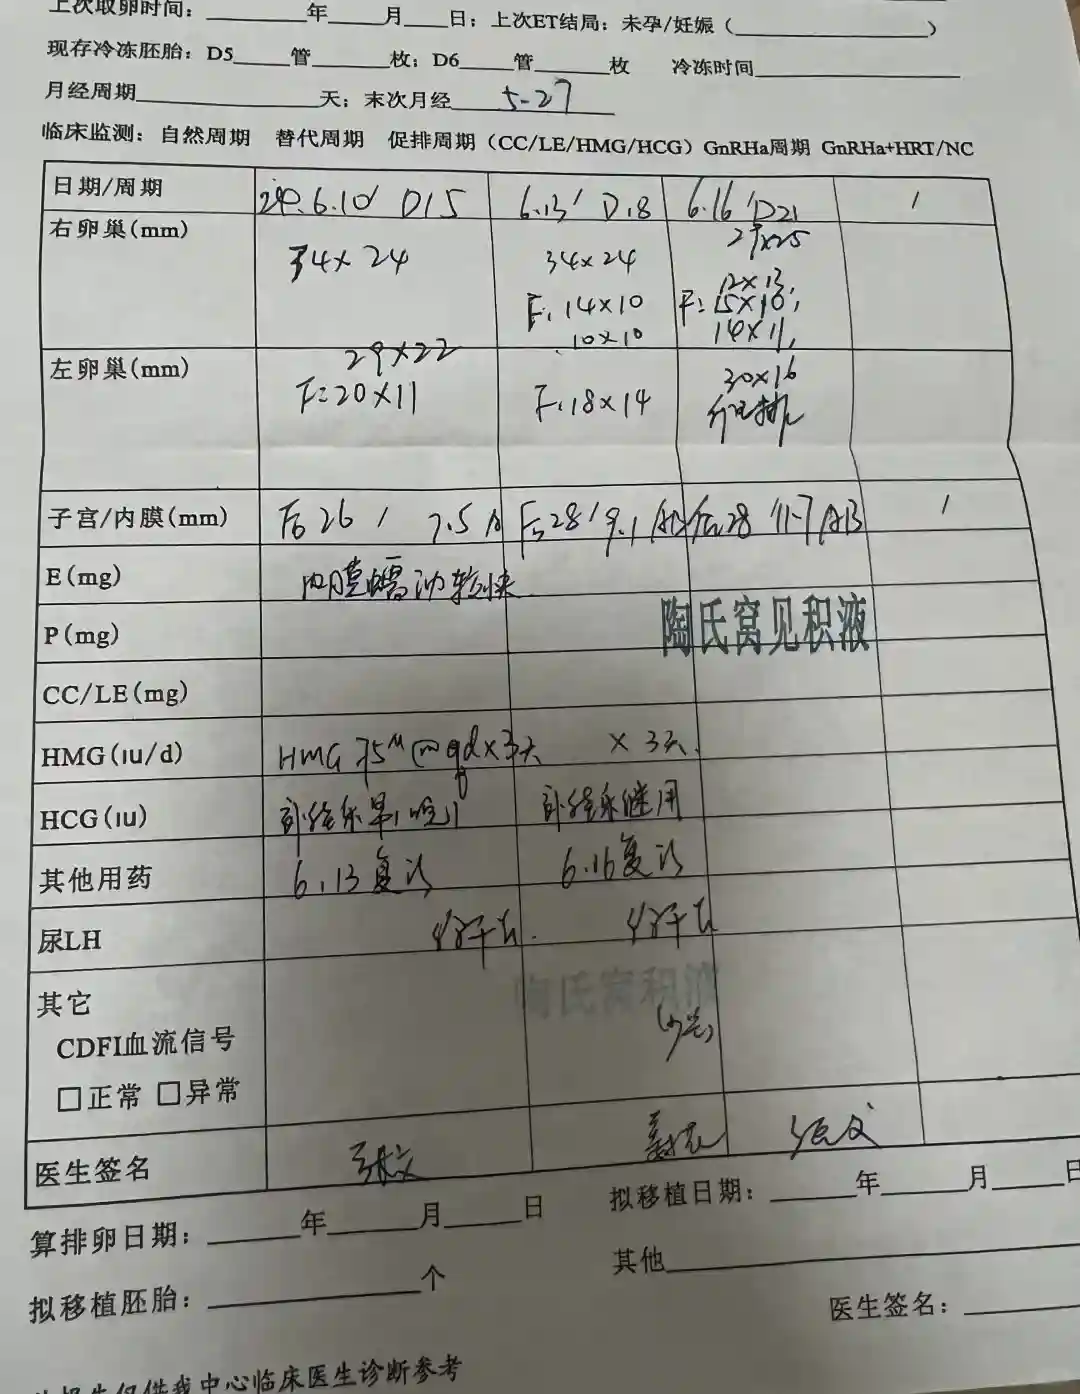 上次取卵时间：____年____月____日；上次ET结局：未孕/妊娠（________）
现存冷冻胚胎：D5____管____枚；D6____管____枚 冷冻时间________
月经周期________天；末次月经 5-27
临床监测：自然周期 替代周期 促排周期（CC/LE/HMG/HCG）GnRHa周期 GnRHa+HRT/NC
日期/周期 6.10/ D15 6.13/ D18 6.16/D21 /
右卵巢(mm) 34×24 34×24 29×25
F: 14×10 10×10 F: 12×13, 15×10, 14×11,
左卵巢(mm) 29×22 30×16
F=20×11 F:18×14 已排
子宫/内膜(mm) 后26/ 7.5 A 后28/9.1 AB 后28/11.7 AB /
E(mg) 内膜蠕动较快
P(mg) 陶氏窝见积液
CC/LE(mg)
HMG(iu/d) HMG 75u im qd×3天 ×3天
HCG(iu) 补佳乐早1晚1 补佳乐继用
其他用药 6.13复诊 6.16复诊
尿LH
其它 陶氏窝积液
CDFI血流信号 (少量)
□正常 □异常
医生签名
算排卵日期：____年____月____日 拟移植日期：____年____月____日
拟移植胚胎：________个 其他________
医生签名：____
中心临床医生诊断参考